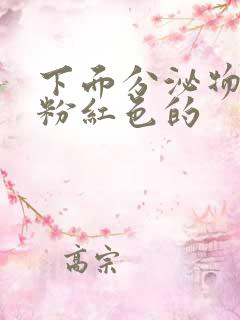 下而分泌物
粉紅色的
高宗